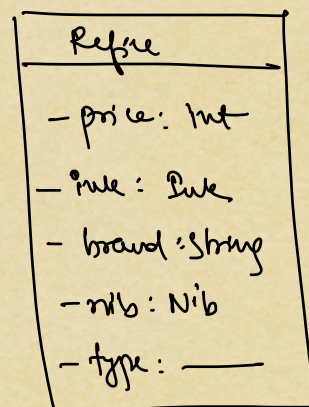 Refile
- price: Int
- ink: Ink
- brand: String
- nib: Nib
- type: ______